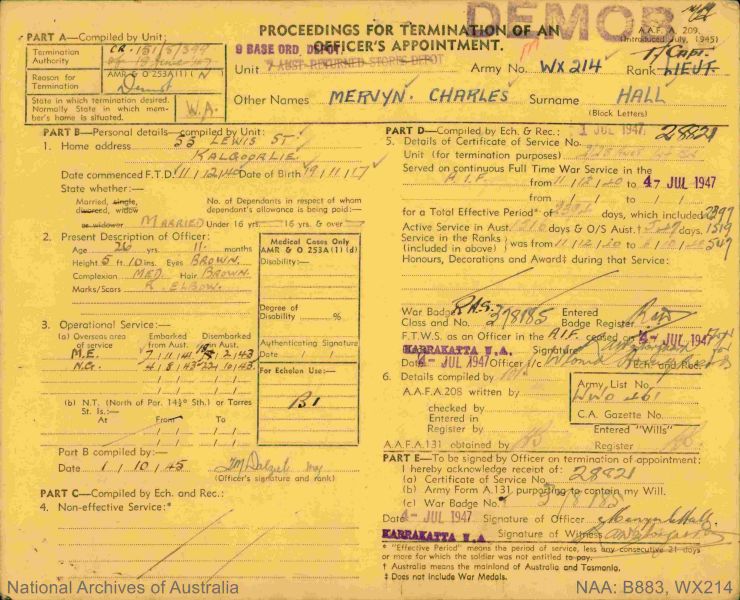 DEMOB
PROCEEDINGS FOR TERMINATION OF AN
OFFICER'S APPOINTMENT.
A.A.F. A. 209.
(Introduced July, 1945)
PART A—Compiled by Unit:
Termination
Authority
Reason for
Termination
AMR & O 253A(1) N
Demob
State in which termination desired.
Normally State in which mem-
ber's home is situated.
W.A.
9 BASE ORD. DEPOT.
Unit 7 AUST RETURNED STORES DEPOT
Army No. WX214
T/Capt.
Rank LIEUT
Other Names MERVYN. CHARLES Surname HALL
(Block Letters)
PART B—Personal details—compiled by Unit:
1. Home address 55 LEWIS ST
KALGOORLIE
Date commenced F.T.D. 11/12/40 Date of Birth 19/11/17
State whether:—
Married, single,
divorced, widow
or widower MARRIED
No. of Dependants in respect of whom
dependant's allowance is being paid:—
Under 16 yrs. 16 yrs. & over
2. Present Description of Officer:
Age 26 yrs. 11 months
Height 5 ft. 10 ins. Eyes BROWN.
Complexion MED. Hair BROWN.
Marks/Scars R. ELBOW.
Medical Cases Only
AMR & O 253A(1)(d)
Disability:—
Degree of
Disability %
Authenticating Signature
Date / /
For Echelon Use:—
B1
3. Operational Service:—
(a) Overseas area
of service
Embarked
from Aust.
Disembarked
in Aust.
M.E. 7/11/41 2/43
N.G. 4/8/43 22/10/43
(b) N.T. (North of Par. 14½° Sth.) or Torres
St. Is.:—
At From To
Part B compiled by:
Date 1/10/45
(Officer's signature and rank)
PART C—Compiled by Ech. and Rec.:
4. Non-effective Service:*
PART D—Compiled by Ech. & Rec.: 1 JUL 1947
5. Details of Certificate of Service No. 28821
Unit (for termination purposes)
Served on continuous Full Time War Service in the
A.I.F. from 11/12/40 to 4- JUL 1947
for a Total Effective Period* of days, which included
Active Service in Aust.† days & O/S Aust.‡ days.
Service in the Ranks
(included in above) was from 11/12/40 to
Honours, Decorations and Award‡ during that Service:
War Badge R.A.S.
Class and No. 278185
Entered
Badge Register
F.T.W.S. as an Officer in the A.I.F. ceased on 4- JUL 1947
KARRAKATTA W.A. Signature
Date 4- JUL 1947 Officer i/c Ech. and Rec.
6. Details compiled by
A.A.F.A.208 written by
checked by
Entered in
Register by
A.A.F.A.131 obtained by
Army List No.
C.A. Gazette No.
Entered "Wills"
Register
PART E—To be signed by Officer on termination of appointment:
I hereby acknowledge receipt of:
(a) Certificate of Service No. 28821
(b) Army Form A.131 purporting to contain my Will.
(c) War Badge No. 278185
Date 4- JUL 1947 Signature of Officer
KARRAKATTA W.A. Signature of Witness
* "Effective Period" means the period of service, less any consecutive 21 days
or more for which the soldier was not entitled to pay.
† Australia means the mainland of Australia and Tasmania.
‡ Does not include War Medals.
National Archives of Australia
NAA: B883, WX214